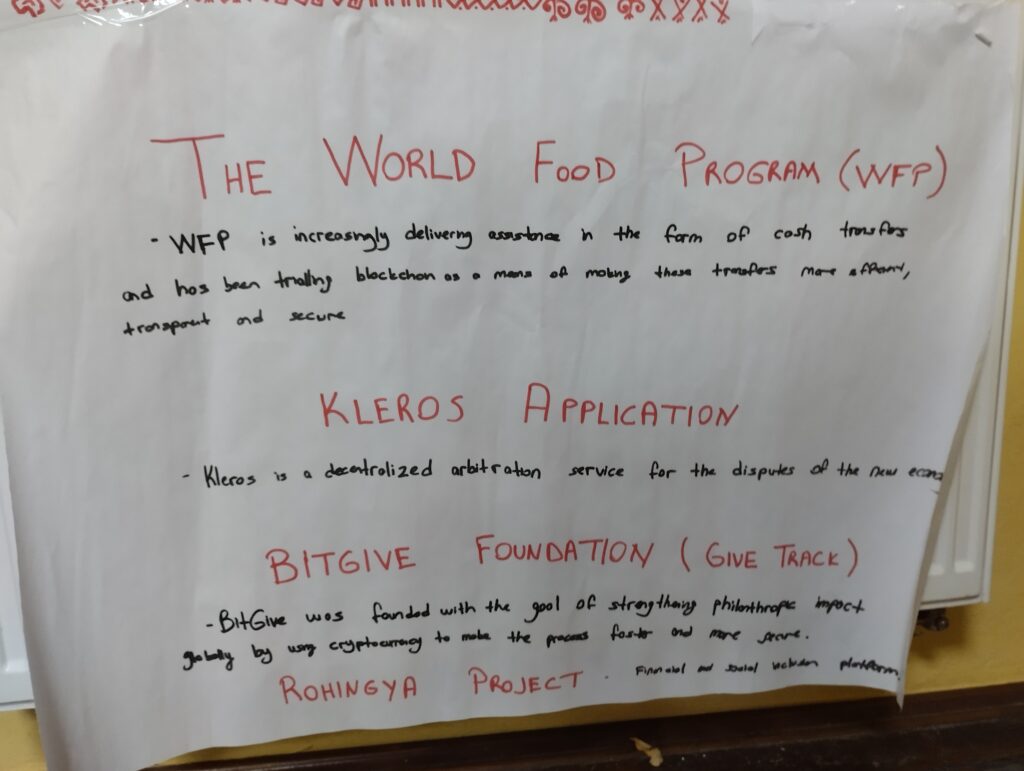 THE WORLD FOOD PROGRAM (WFP)
- WFP is increasingly delivering assistance in the form of cash transfers
and has been trialling blockchain as a means of making these transfers more efficient,
transparent and secure
KLEROS APPLICATION
- Kleros is a decentralized arbitration service for the disputes of the new econo
BITGIVE FOUNDATION (GIVE TRACK)
- BitGive was founded with the goal of strengthening philanthropic impact
globally by using cryptocurrency to make the process faster and more secure.
ROHINGYA PROJECT - Financial and social inclusion platform.